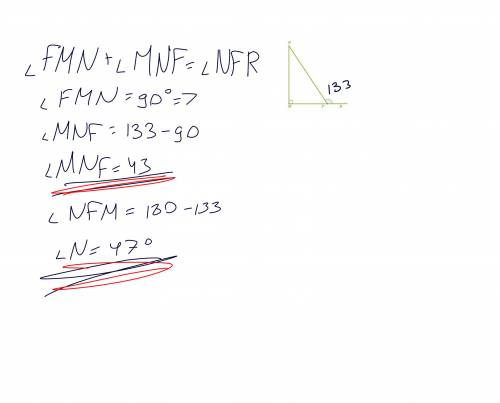 ∠FMN + ∠MNF = ∠NFR
∠FMN = 90° =>
∠MNF = 133 - 90
∠MNF = 43
∠NFM = 180 - 133
∠N = 47°
133